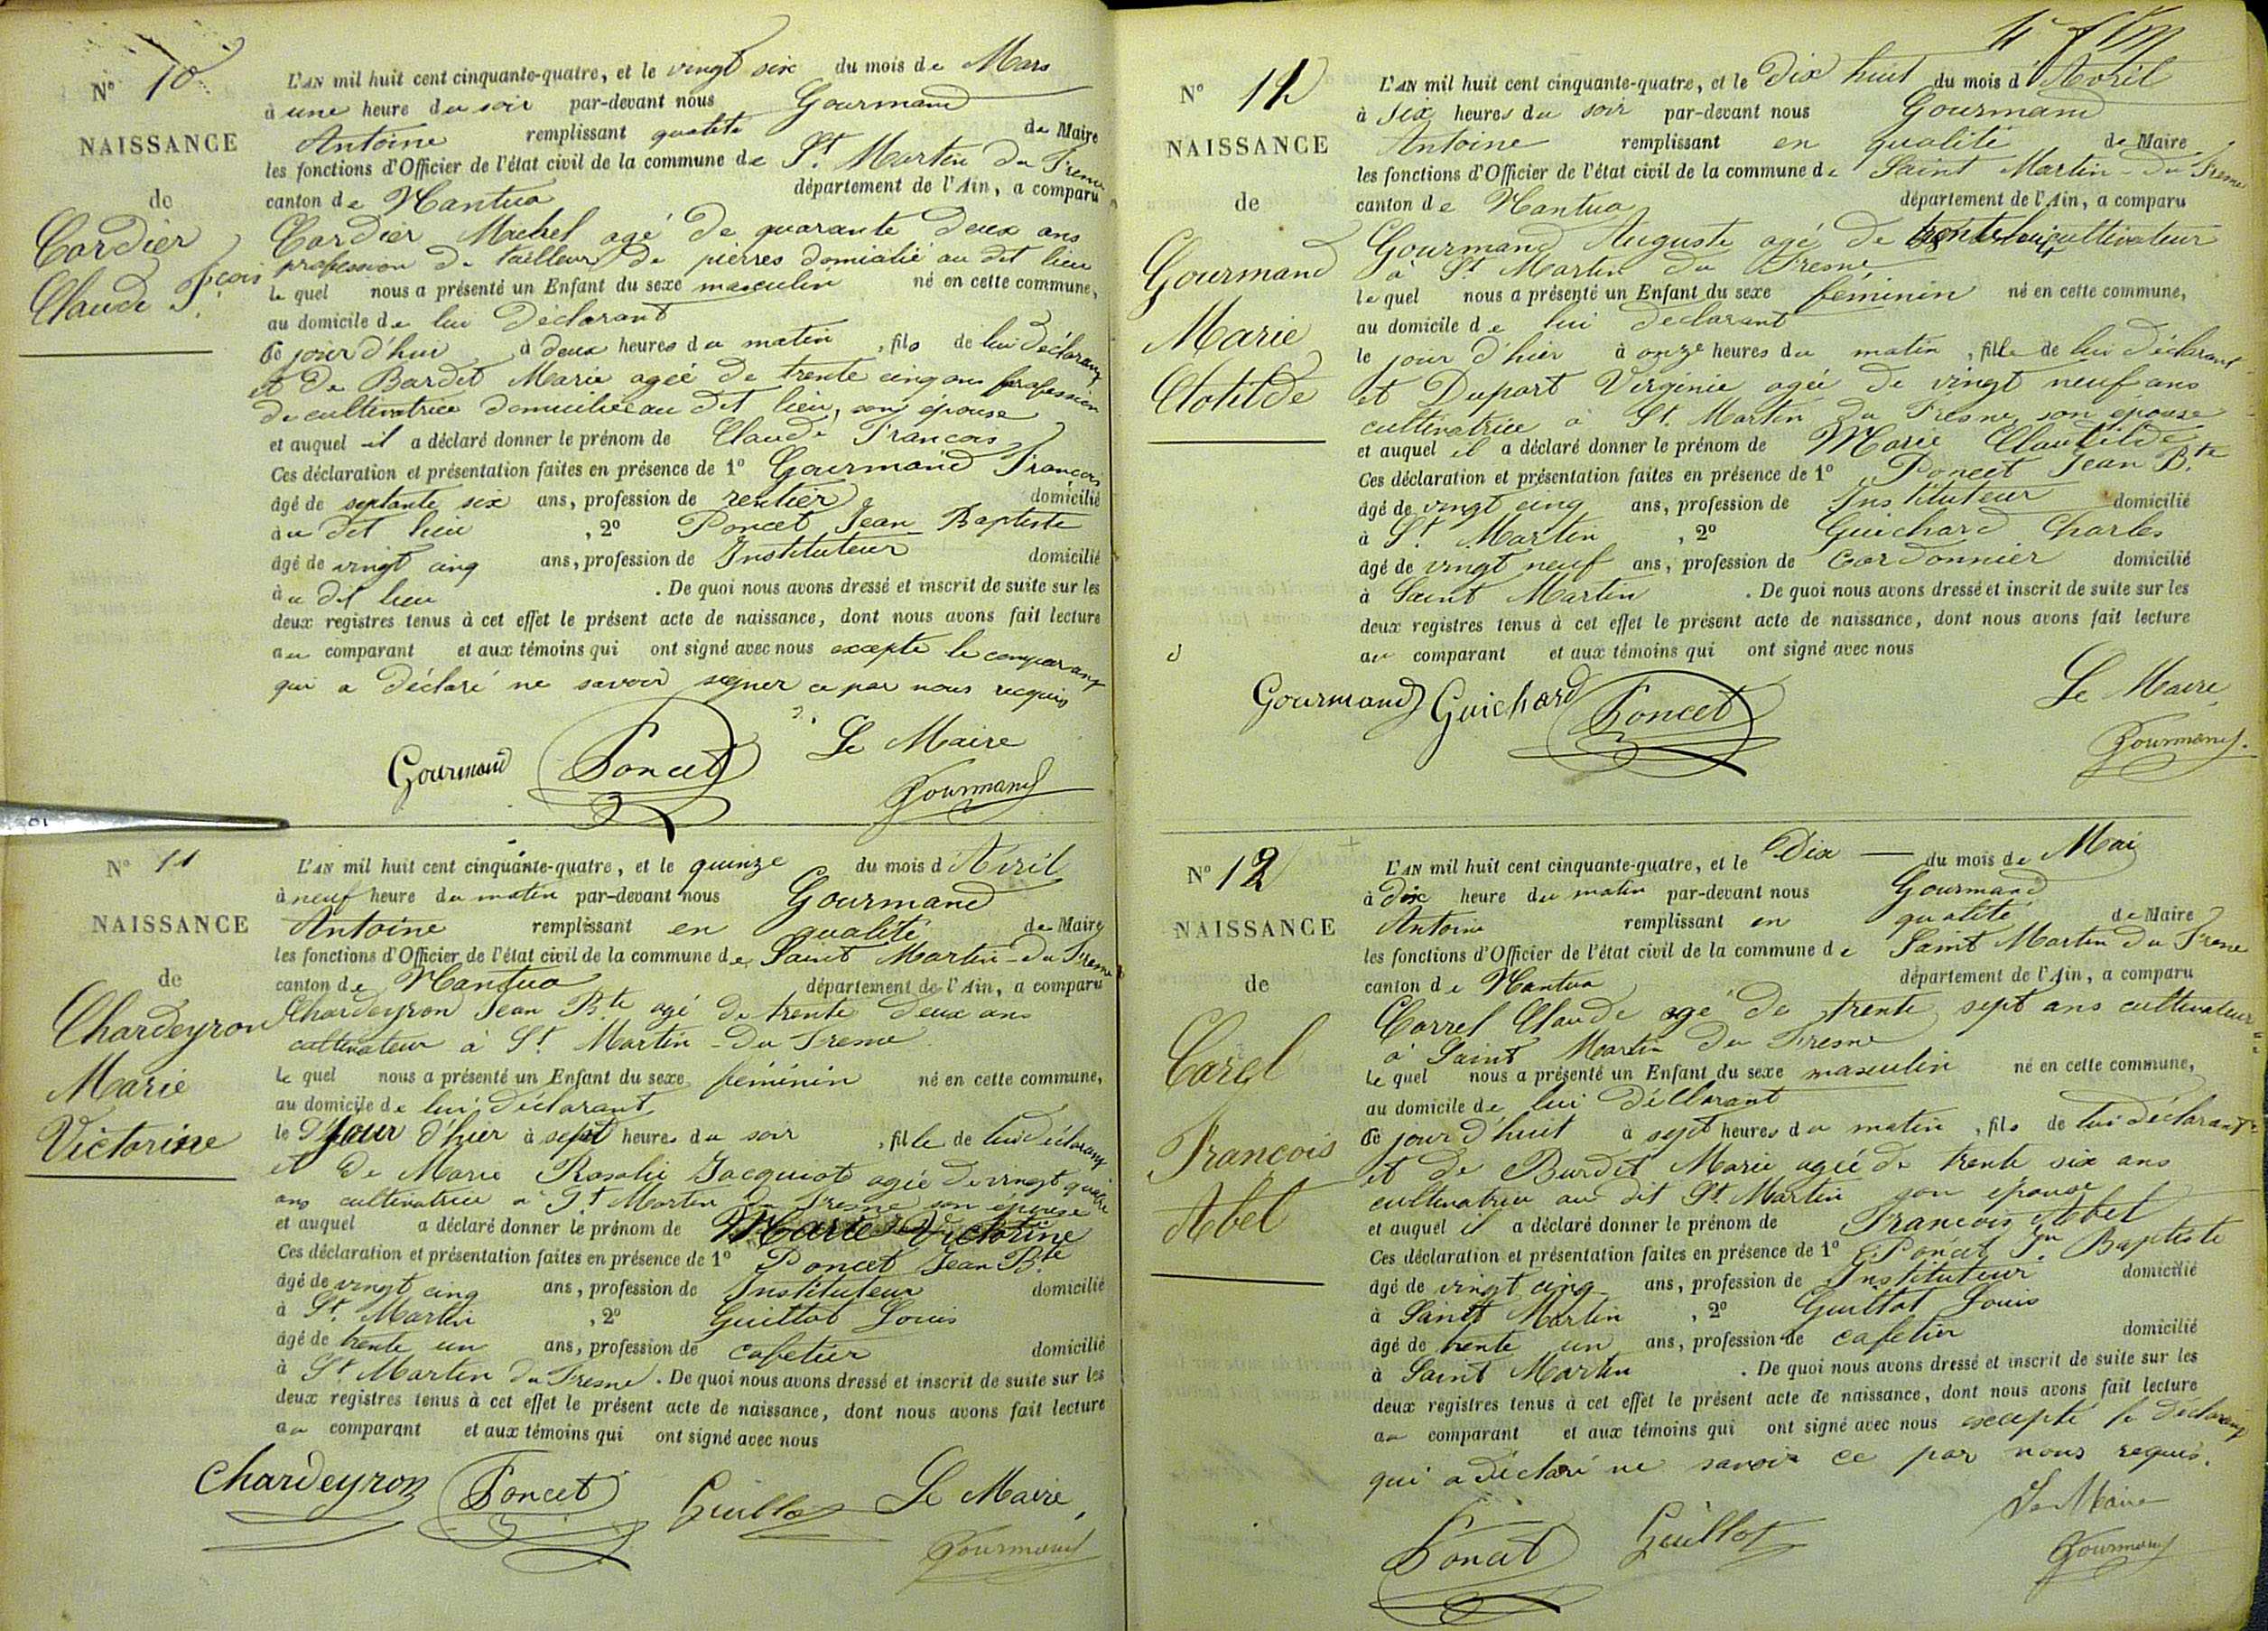 N° 10
NAISSANCE
de
Cordier
Claude F.çois
L'AN mil huit cent cinquante-quatre, et le vingt six du mois de Mars
à une heure du soir par-devant nous Gourmand
Antoine remplissant qualité de Maire
les fonctions d'Officier de l'état civil de la commune de St Martin du Fresne
canton de Nantua département de l'Ain, a comparu
Cordier Michel agé de quarante deux ans
profession de tailleur de pierres domicilié au dit lieu
le quel nous a présenté un Enfant du sexe masculin né en cette commune,
au domicile de lui déclarant
Ce jour d'hui à deux heures du matin, fils de lui déclarant
et de Bardet Marie agée de trente cinq ans profession
de cultivatrice domiciliée au dit lieu, son épouse
et auquel il a déclaré donner le prénom de Claude François
Ces déclaration et présentation faites en présence de 1° Gourmand François
âgé de septante six ans, profession de rentier domicilié
au dit lieu, 2° Poncet Jean Baptiste
âgé de vingt cinq ans, profession de Instituteur domicilié
au dit lieu. De quoi nous avons dressé et inscrit de suite sur les
deux registres tenus à cet effet le présent acte de naissance, dont nous avons fait lecture
au comparant et aux témoins qui ont signé avec nous excepté le comparant
qui a déclaré ne savoir signer ce par nous requis
Le Maire
Gourmand Poncet Gourmand
N° 11
NAISSANCE
de
Chardeyron
Marie
Victorine
L'AN mil huit cent cinquante-quatre, et le quinze du mois d'Avril
à neuf heure du matin par-devant nous Gourmand
Antoine remplissant en qualité de Maire
les fonctions d'Officier de l'état civil de la commune de Saint Martin-du Fresne
canton de Nantua département de l'Ain, a comparu
Chardeyron Jean Bte agé de trente deux ans
cultivateur à St Martin-du Fresne
le quel nous a présenté un Enfant du sexe féminin né en cette commune,
au domicile de lui déclarant
le jour d'hier à sept heures du soir, fille de lui déclarant
et de Marie Rosalie Jacquiot agée de vingt quatre
ans cultivatrice à St Martin du Fresne son épouse
et auquel a déclaré donner le prénom de Marie Victorine
Ces déclaration et présentation faites en présence de 1° Poncet Jean Bte
âgé de vingt cinq ans, profession de Instituteur domicilié
à St Martin, 2° Guillot Louis
âgé de trente un ans, profession de cafetier domicilié
à St Martin du Fresne. De quoi nous avons dressé et inscrit de suite sur les
deux registres tenus à cet effet le présent acte de naissance, dont nous avons fait lecture
au comparant et aux témoins qui ont signé avec nous
Chardeyron Poncet Guillot Le Maire,
Gourmand
N° 12
NAISSANCE
de
Gourmand
Marie
Clotilde
L'AN mil huit cent cinquante-quatre, et le Dix huit du mois d'Avril
à six heures du soir par-devant nous Gourmand
Antoine remplissant en qualité de Maire
les fonctions d'Officier de l'état civil de la commune de Saint Martin-du Fresne
canton de Nantua département de l'Ain, a comparu
Gourmand Auguste agé de cultivateur
à St Martin du Fresne
le quel nous a présenté un Enfant du sexe féminin né en cette commune,
au domicile de lui déclarant
le jour d'hier à onze heures du matin, fille de lui déclarant
et Dupart Virginie agée de vingt neuf ans
cultivatrice à St. Martin du Fresne son épouse
et auquel il a déclaré donner le prénom de Marie Clautilde
Ces déclaration et présentation faites en présence de 1° Poncet Jean Bte
âgé de vingt cinq ans, profession de Instituteur domicilié
à St Martin, 2° Guichard Charles
âgé de vingt neuf ans, profession de Cordonnier domicilié
à Saint Martin. De quoi nous avons dressé et inscrit de suite sur les
deux registres tenus à cet effet le présent acte de naissance, dont nous avons fait lecture
au comparant et aux témoins qui ont signé avec nous
Gourmand Guichard Poncet Le Maire,
Gourmand
N°
NAISSANCE
de
Carel
Francois
Abel
L'AN mil huit cent cinquante-quatre, et le Dix — du mois de Mai
à dix heure du matin par-devant nous Gourmand
Antoine remplissant en qualité de Maire
les fonctions d'Officier de l'état civil de la commune de Saint Martin du Fresne
canton de Nantua département de l'Ain, a comparu
Carrel Claude agé de trente sept ans cultivateur
à Saint Martin du Fresne
le quel nous a présenté un Enfant du sexe masculin né en cette commune,
au domicile de lui déclarant
Ce jour d'huit à sept heures du matin, fils de lui déclarant
et de Burdet Marie agée de trente six ans
cultivatrice au dit St Martin son épouse
et auquel il a déclaré donner le prénom de Francois Abel
Ces déclaration et présentation faites en présence de 1° Poncet Jn Baptiste
âgé de vingt cinq ans, profession de Instituteur domicilié
à Saint Martin, 2° Guillot Louis
âgé de trente un ans, profession de cafetier domicilié
à Saint Martin. De quoi nous avons dressé et inscrit de suite sur les
deux registres tenus à cet effet le présent acte de naissance, dont nous avons fait lecture
au comparant et aux témoins qui ont signé avec nous excepté le déclarant
qui a déclaré ne savoir ce par nous requis.
Poncet Guillot Le Maire
Gourmand